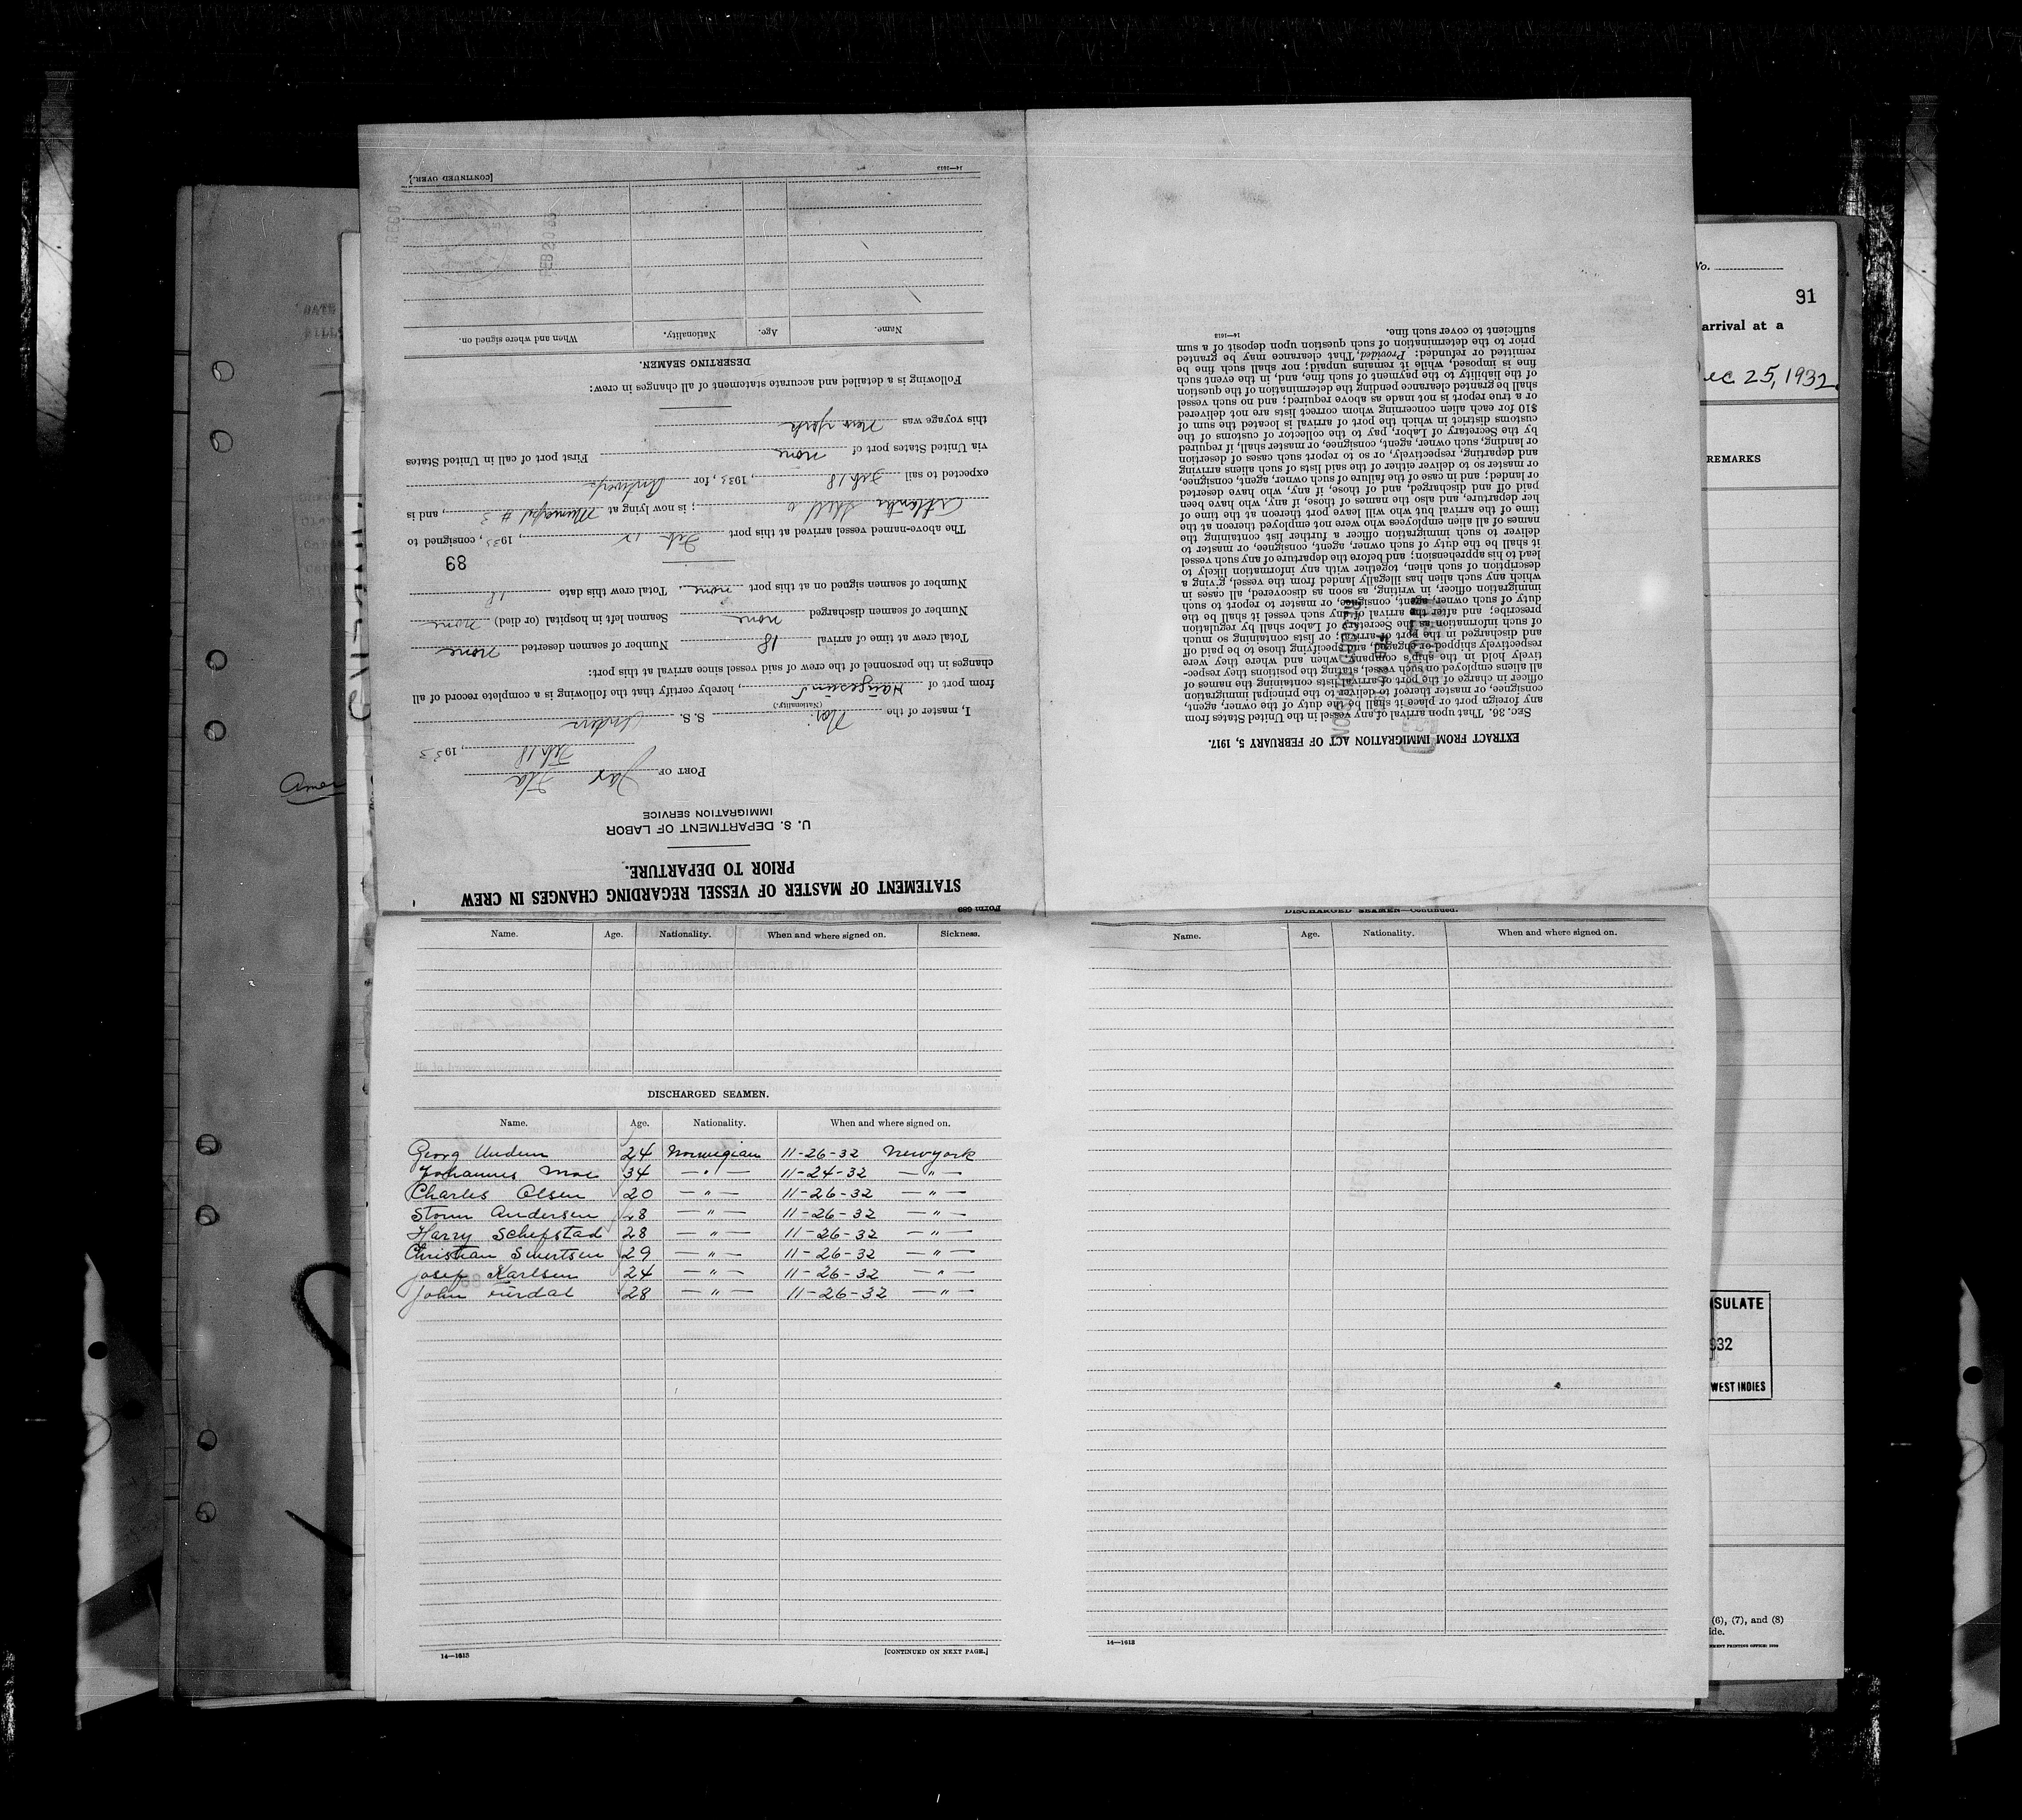 Form 689
STATEMENT OF MASTER OF VESSEL REGARDING CHANGES IN CREW
PRIOR TO DEPARTURE.
U. S. DEPARTMENT OF LABOR
IMMIGRATION SERVICE
PORT OF Jax Fla
Feb 18, 1933
I, master of the Nor. S. S.
(Nationality.)
from port of Haugesund, hereby certify that the following is a complete record of all
changes in the personnel of the crew of said vessel since arrival at this port:
Total crew at time of arrival 18 Number of seamen deserted none
Number of seamen discharged none Seamen left in hospital (or died) none
Number of seamen signed on at this port none Total crew this date 18
89
The above-named vessel arrived at this port Feb, 1933, consigned to
; is now lying at Municipal # 3, and is
expected to sail Feb 18, 1933, for Antwerp
via United States port of none First port of call in United States
this voyage was New York
Following is a detailed and accurate statement of all changes in crew:
DESERTING SEAMEN.
Name. Age. Nationality. When and where signed on.
REC'D
FEB 20 33
14—1613 [CONTINUED OVER.]
EXTRACT FROM IMMIGRATION ACT OF FEBRUARY 5, 1917.
SEC. 36. That upon arrival of any vessel in the United States from
any foreign port or place it shall be the duty of the owner, agent,
consignee, or master thereof to deliver to the principal immigration
officer in charge of the port of arrival lists containing the names of
all aliens employed on such vessel, stating the positions they respec-
tively hold in the ship's company, when and where they were
respectively shipped or engaged, and specifying those to be paid off
and discharged in the port of arrival; or lists containing so much
of such information as the Secretary of Labor shall by regulation
prescribe; and after the arrival of any such vessel it shall be the
duty of such owner, agent, consignee, or master to report to such
immigration officer, in writing, as soon as discovered, all cases in
which any such alien has illegally landed from the vessel, giving a
description of such alien, together with any information likely to
lead to his apprehension; and before the departure of any such vessel
it shall be the duty of such owner, agent, consignee, or master to
deliver to such immigration officer a further list containing the
names of all alien employees who were not employed thereon at the
time of the arrival but who will leave port thereon at the time of
her departure, and also the names of those, if any, who have been
paid off and discharged, and of those, if any, who have deserted
or landed; and in case of the failure of such owner, agent, consignee,
or master so to deliver either of the said lists of such aliens arriving
and departing, respectively, or so to report such cases of desertion
or landing, such owner, agent, consignee, or master shall, if required
by the Secretary of Labor, pay to the collector of customs of the
customs district in which the port of arrival is located the sum of
$10 for each alien concerning whom correct lists are not delivered
or a true report is not made as above required; and no such vessel
shall be granted clearance pending the determination of the question
of the liability to the payment of such fine, and, in the event such
fine is imposed, while it remains unpaid; nor shall such fine be
remitted or refunded: Provided, That clearance may be granted
prior to the determination of such question upon deposit of a sum
sufficient to cover such fine.
14—1613
Name. Age. Nationality. When and where signed on. Sickness.
DISCHARGED SEAMEN.
Name. Age. Nationality. When and where signed on.
Georg 24 Norwegian 11-26-32 New york
Johannes Moe 34 — " — 11-24-32 — " —
Charles Olsen 20 — " — 11-26-32 — " —
Storm Andersen 28 — " — 11-26-32 — " —
Harry Schefstad 28 — " — 11-26-32 — " —
Christian Sivertsen 29 — " — 11-26-32 — " —
Josef Karlsen 24 — " — 11-26-32 — " —
John 28 — " — 11-26-32 — " —
14—1613 [CONTINUED ON NEXT PAGE.]
DISCHARGED SEAMEN—Continued.
Name. Age. Nationality. When and where signed on.
14—1613
No.
91
arrival at a
Dec 25, 1932
REMARKS
NSULATE
932
WEST INDIES
(6), (7), and (8)